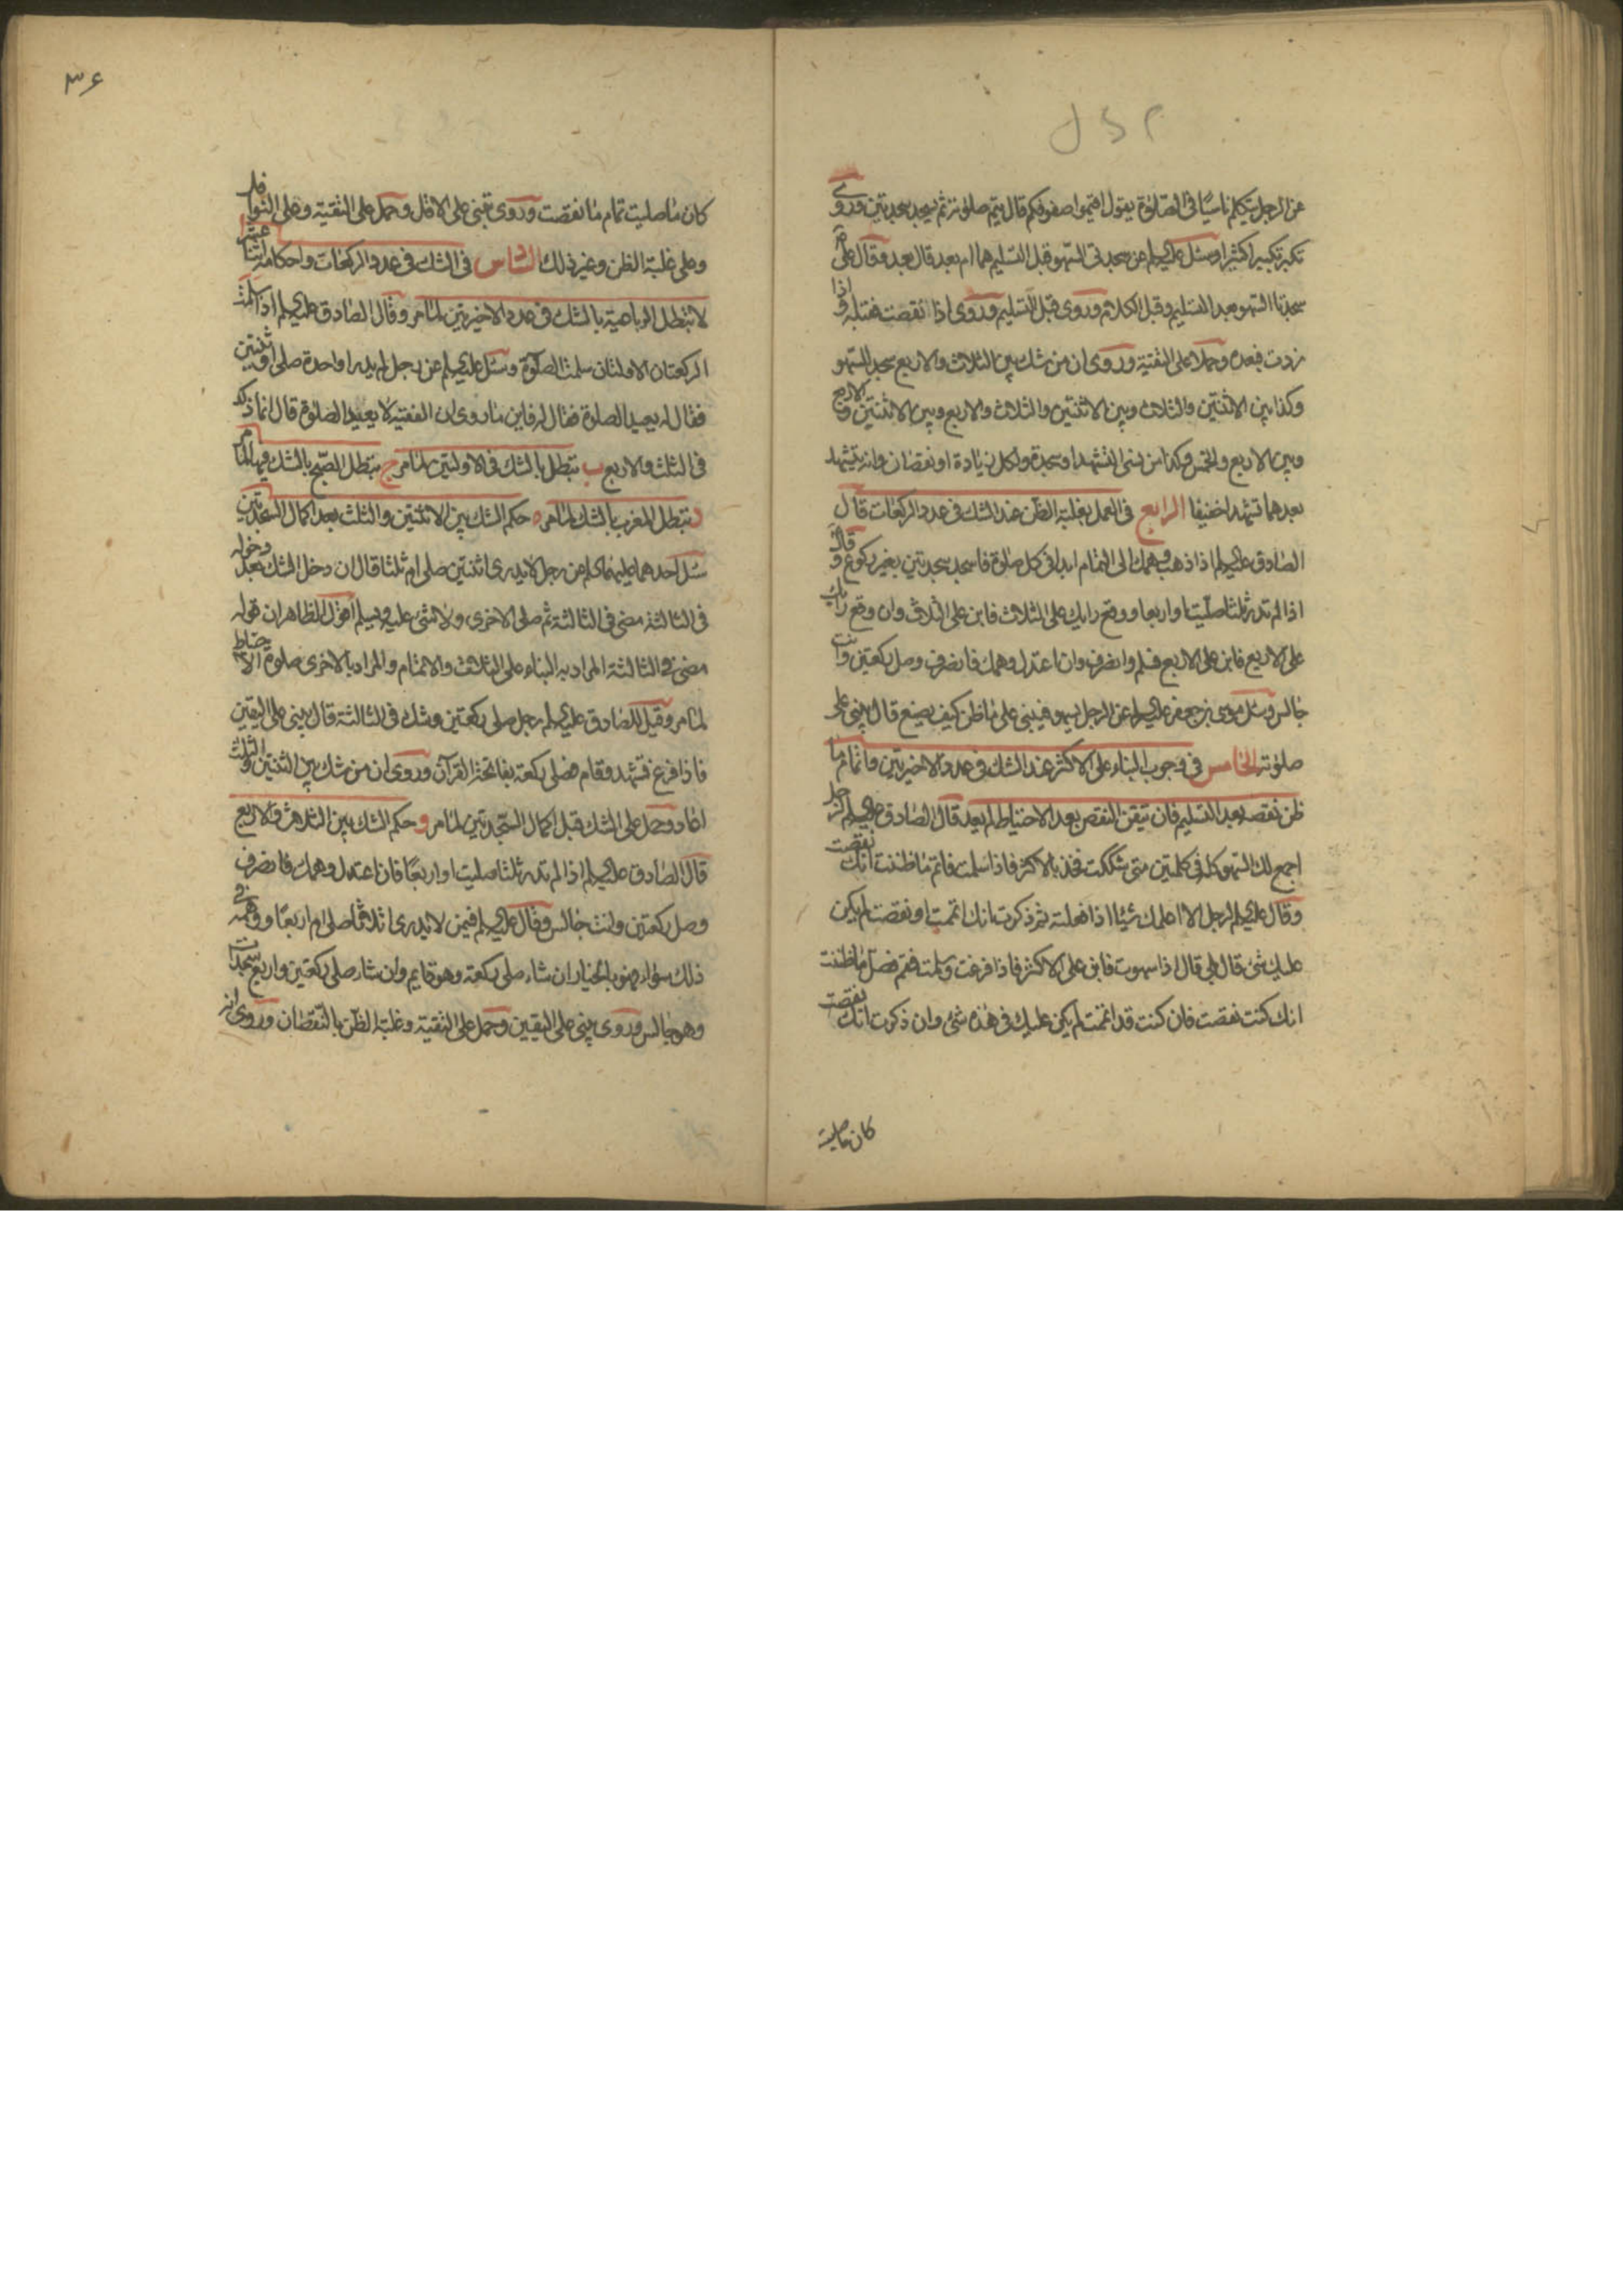 عن الرجل يتكلم ناسيا فى الصلوة يقول اقيموا صفوفكم قال يتم صلوته ثم يسجد سجدتين وروى
تكبر تكبيرا كثيرا وسئل عليه السلم عن سجدتى السهو قبل التسليم هما ام بعد قال بعد وقال على ع
سجدتا السهو بعد التسليم وقبل الكلام وروى قبل التسليم وروى اذا نقصت فقبله واذا
زدت فبعده وحملا على التقية وروى ان من شك بين الثلاث والاربع سجد للسهو
وكذا بين الاثنتين والثلاث وبين الاثنتين والثلاث والاربع وبين الاثنتين والاربع
وبين الاربع والخمس وكذا من نسى التشهد او سجدة ولكل زيادة او نقصان وانه يتشهد
بعدهما تشهدا خفيفا الرابع فى العمل بغلبة الظن عند الشك فى عدد الركعات قال
الصادق عليه السلم اذا ذهب وهمك الى التمام ابدا فى كل صلوة فاسجد سجدتين بغير ركوع وقال
اذا لم تدر ثلثا صليت او اربعا ووقع رايك على الثلاث فابن على الثلاث وان وقع رايك
على الاربع فابن على الاربع فسلم وانصرف وان اعتدل وهمك فانصرف وصل ركعتين وانت
جالس وسئل موسى بن جعفر عليه السلم عن الرجل يسهو فيبنى على ما ظن كيف يصنع قال يبنى على
صلوته الخامس فى وجوب البناء على الاكثر عند الشك فى عدد الاخيرتين واتمام ما
ظن نقصه بعد التسليم فان تيقن النقص بعد الاحتياط لم يعد قال الصادق عليه السلم لرجل
اجمع لك السهو كله فى كلمتين متى شككت فخذ بالاكثر فاذا سلمت فاتم ما ظننت انك نقصت
وقال عليه السلم لرجل الا اعلمك شيئا اذا فعلته ثم ذكرت انك اتممت او نقصت لم يكن
عليك شئ قال بلى قال اذا سهوت فابن على الاكثر فاذا فرغت وسلمت فقم فصل ما ظننت
انك كنت نقصت فان كنت قد اتممت لم يكن عليك فى هذه شئ وان ذكرت انك نقصت
كان ما صليت
٣۶
كان ما صليت تمام ما نقصت وروى تبنى على الاقل وحمل على التقية وعلى النوافل
وعلى غلبة الظن وغير ذلك السادس فى الشك فى عدد الركعات واحكامه اثنا عشر
لا تبطل الرباعية بالشك فى عدد الاخيرتين لما مر وقال الصادق عليه السلم اذا سلمت
الركعتان الاولتان سلمت الصلوة وسئل عليه السلم عن رجل لم يدر واحدة صلى او ثنتين
فقال له يعيد الصلوة فقال له فاين ما روى ان الفقيه لا يعيد الصلوة قال انما ذلك
فى الثلث والاربع ب تبطل بالشك فى الاولتين لما مر ج تبطل الصبح بالشك فيها لما مر
د تبطل المغرب بالشك لما مر ه حكم الشك بين الاثنتين والثلث بعد اكمال السجدتين
سئل احدهما عليهما السلم عن رجل لا يدرى اثنتين صلى ام ثلثا قال ان دخل الشك بعد دخوله
فى الثالثة مضى فى الثالثة ثم صلى الاخرى ولا شئ عليه ويسلم اقول الظاهر ان قوله
مضى فى الثالثة المراد به البناء على الثلاث والاتمام والمراد بالاخرى صلوة الاحتياط
لما مر وقيل للصادق عليه السلم رجل صلى ركعتين وشك فى الثالثة قال يبنى على اليقين
فاذا فرغ تشهد وقام فصلى ركعة بفاتحة القرآن وروى ان من شك بين الثنتين والثلث
اعاد وحمل على الشك قبل اكمال السجدتين لما مر و حكم الشك بين الثلاث والاربع
قال الصادق عليه السلم اذا لم تدر ثلثا صليت او اربعا فان اعتدل وهمك فانصرف
وصل ركعتين وانت جالس وقال عليه السلم فيمن لا يدرى اثلاثا صلى ام اربعا ووهمه فى
ذلك سواء فهو بالخيار ان شاء صلى ركعة وهو قايم وان شاء صلى ركعتين واربع سجدات
وهو جالس وروى يبنى على اليقين وحمل على التقية وغلبة الظن بالنقصان وروى انه